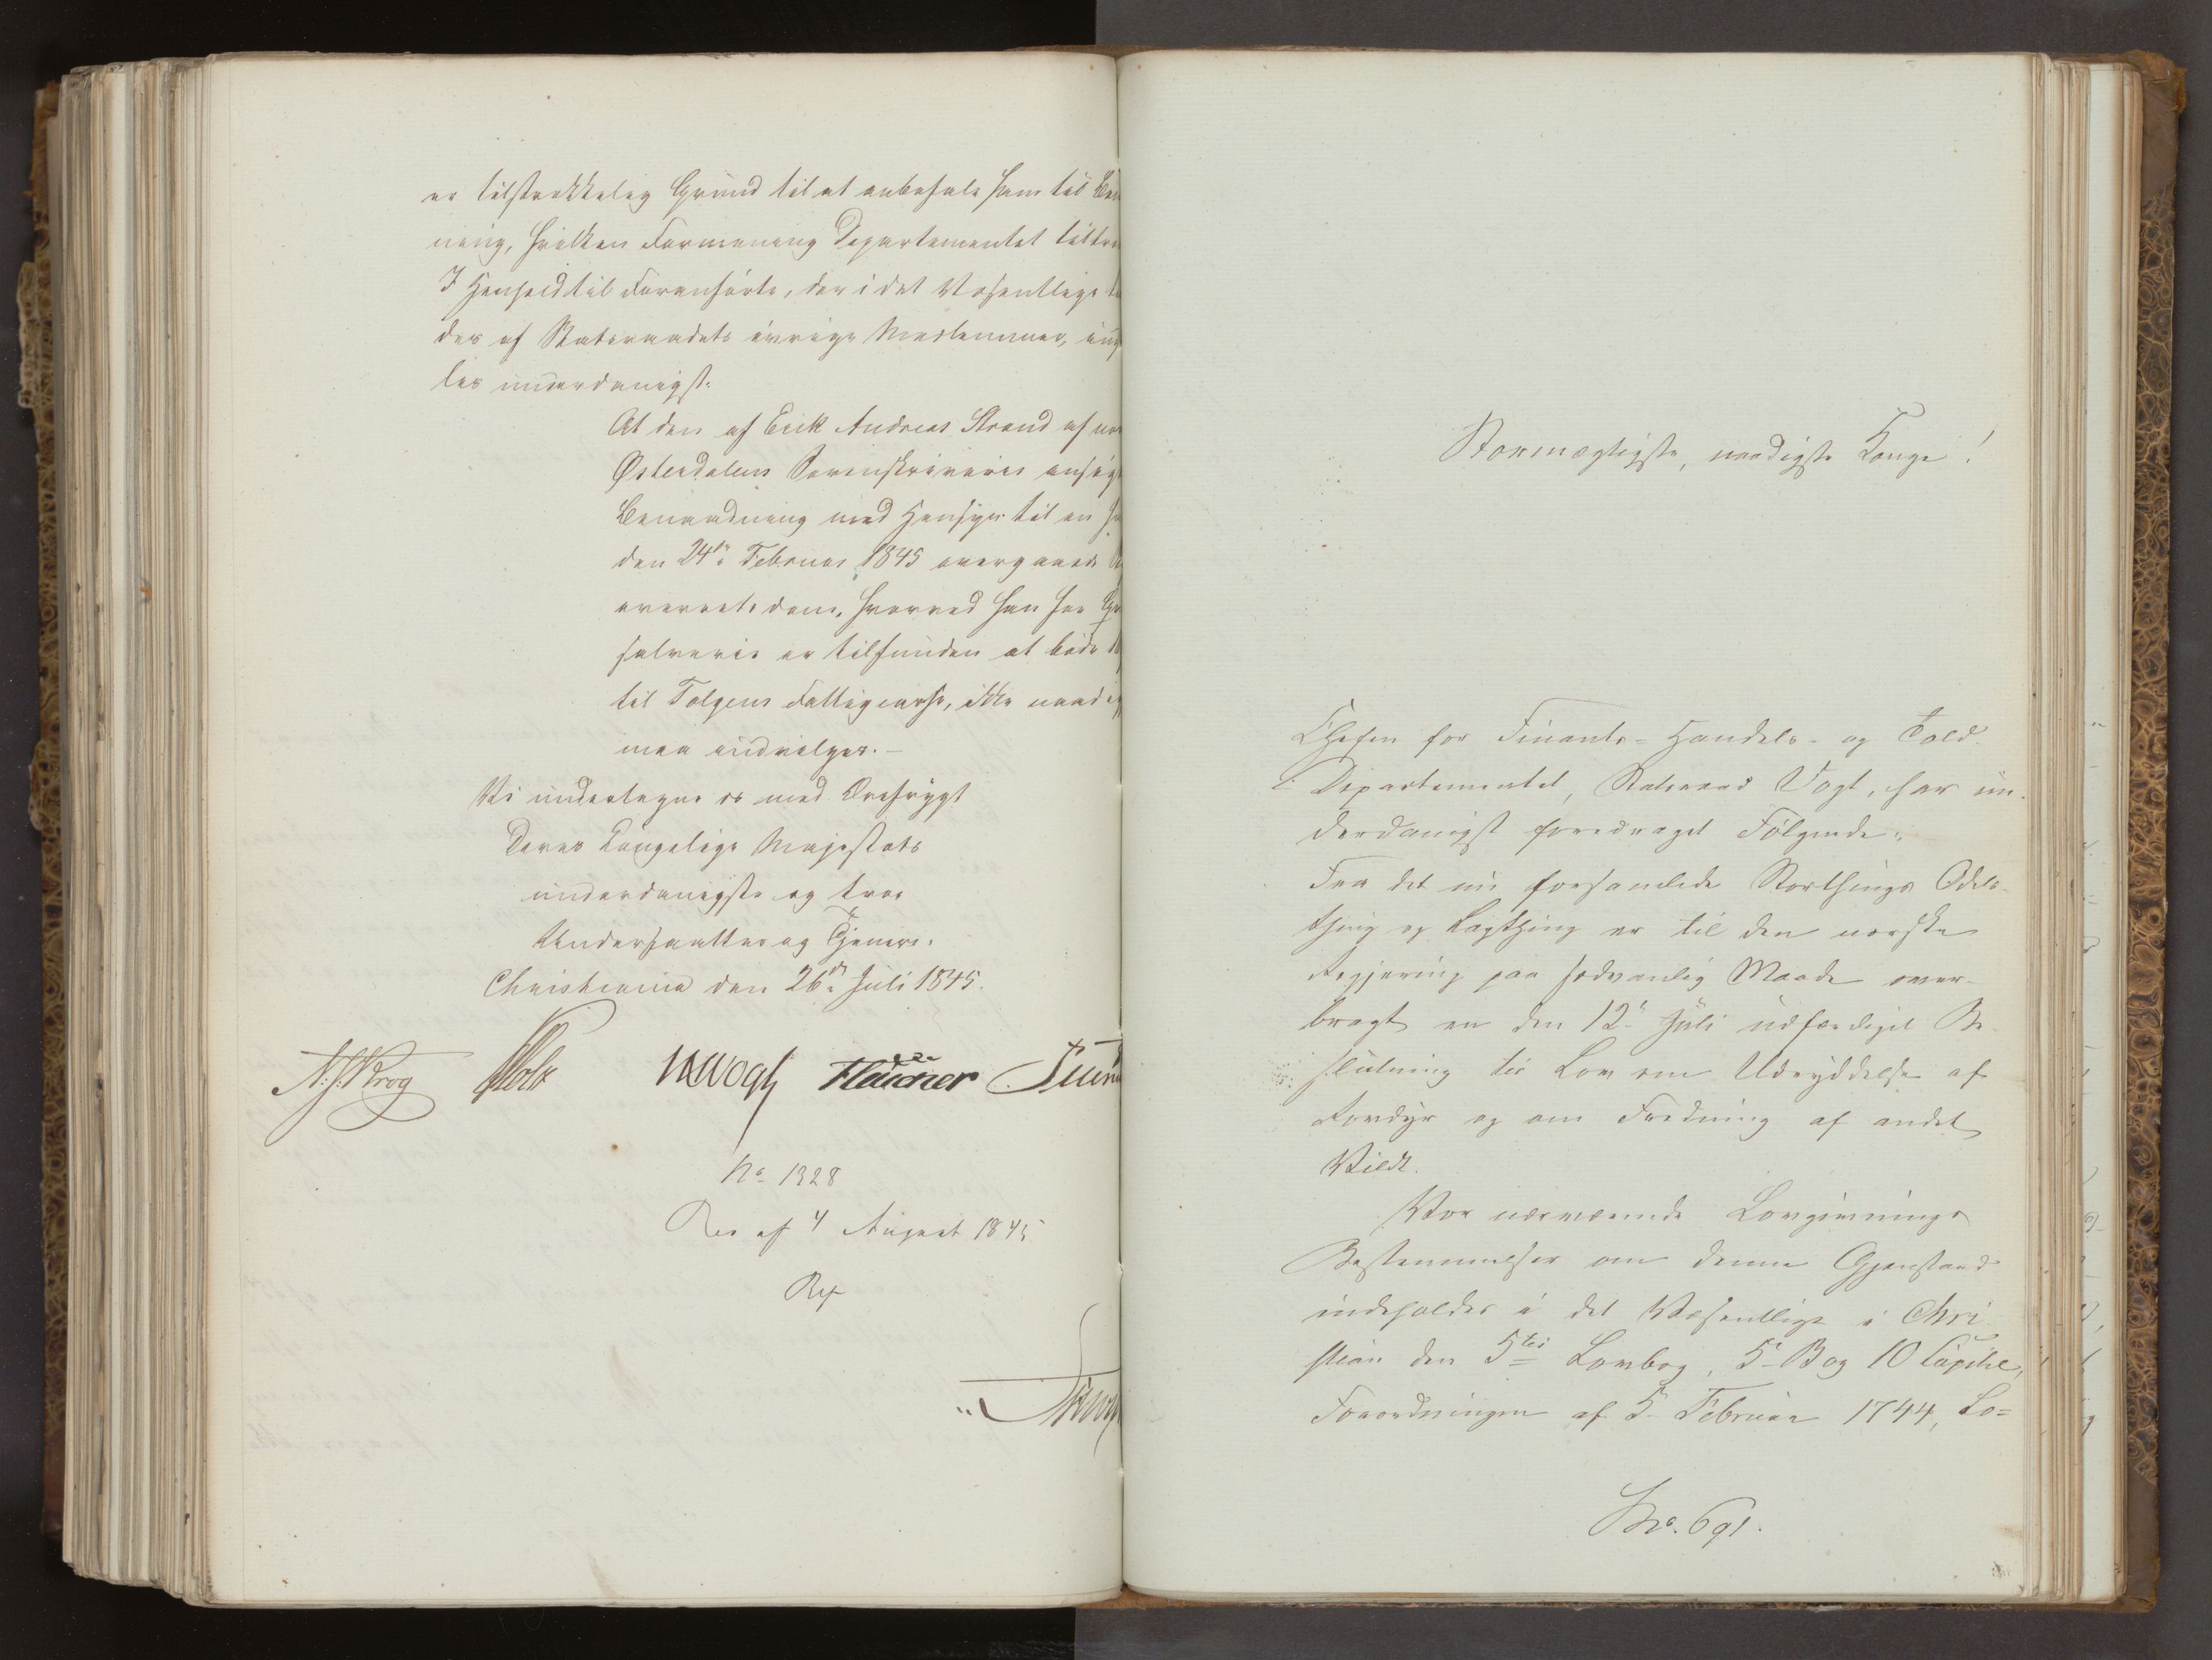 er tilstrækkelig Grund til at anbefale ham til Ben
ning, hvilken Formening Departementet tiltræ
I Henhold til Foranførte, der i det Væsentlige
des af Statsraadets øvrige Medlemmer, ind
les underdanigst:
At den af Erik Andreas Strand af
Østerdalens Sorenskriverie ansøgt
Benaadning med Hensyn til en
den 24de Februar 1845 overgaaede
overretsdom, hvorved han for
er tilfunden at bøde
til Tolgens Fattigcasse, ikke naadig
maa indvilges.-
Vi undertegne os med Ærefrygt
Deres Kongelige Majestæts
underdanigste og troe
Undersaatter og Tjenere.
Christiania den 26de Juli 1845.
N. J. Krog Holst JHVogt Fleischer Sund
No 1328
Res af 4 August 1845
Ref
Stormægtigste, naadigste Konge!
Chefen for Finants- Handels- og Told-
Departementet, Statsraad Vogt, har un-
derdanigst foredraget Følgende:
Fra det nu forsamlede Storthings Odels-
thing og Lagthing er til den norske
Regjering paa sædvanlig Maade over-
bragt en den 12te Juli udfærdiget Be-
slutning til Lov om Udryddelse af
Rovdyr og om Fredning af andet
Vildt.
Vor nærværende Lovgivnings
Bestemmelser om denne Gjenstand
indeholdes i det Væsentlige i Chri-
stian den 5tes Lovbog, 5- Bog 10 Capitel,
Forordningen af 5- Februar 1744, Lo=
No. 691.